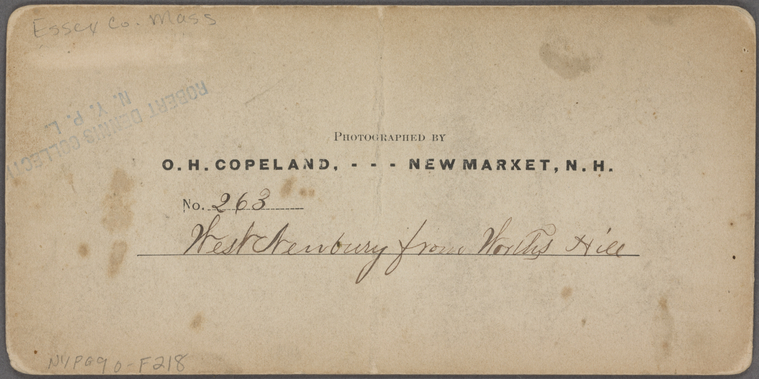 Essex Co. Mass
ROBERT DENNIS COLLECT
N. Y. P. L.
PHOTOGRAPHED BY
O. H. COPELAND, - - - NEWMARKET, N. H.
No. 263
West Newbury from Worths Hill
NYPG90-F218